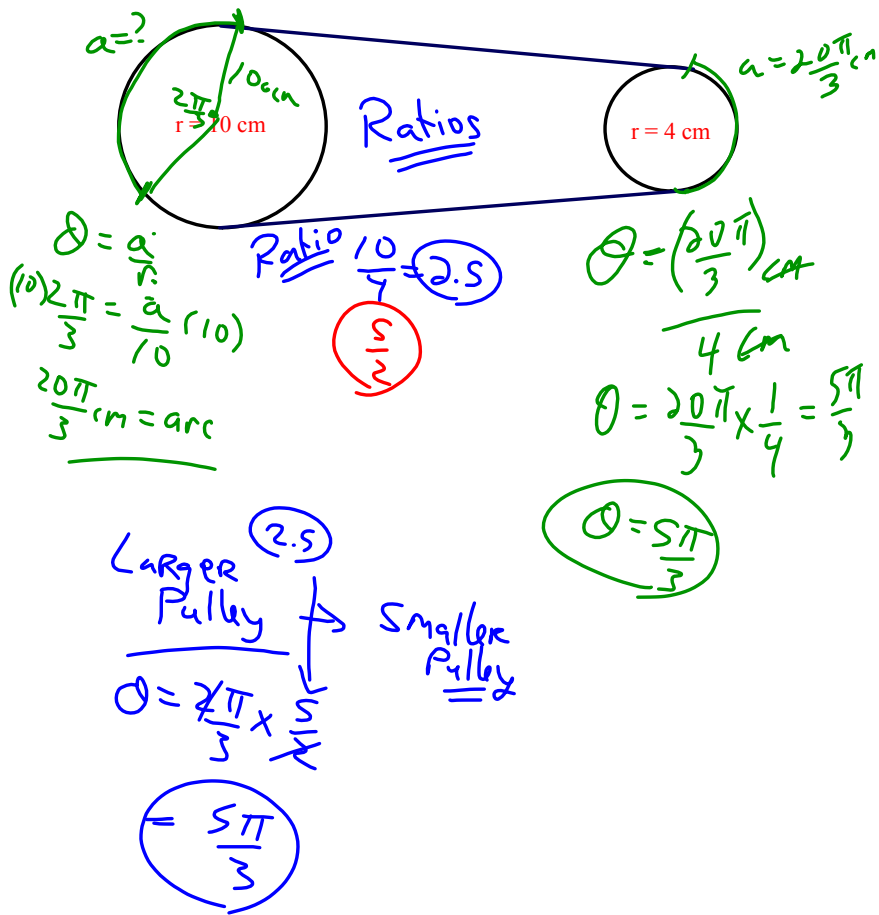 a=?
10 cm
2π/3
r = 10 cm
Ratios
r = 4 cm
a = 20π/3 cm
θ = a/r
(10) 2π/3 = a/10 (10)
20π/3 cm = arc
Ratio 10/4 = 2.5
5/2
θ = (20π/3) cm / 4 cm
θ = 20π/3 × 1/4 = 5π/3
θ = 5π/3
2.5
Larger Pulley → Smaller Pulley
θ = 2π/3 × 5/2
= 5π/3